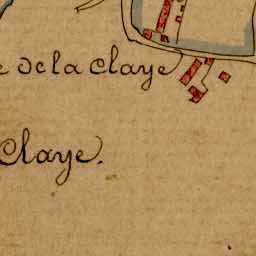 e de la Claye
Claye.